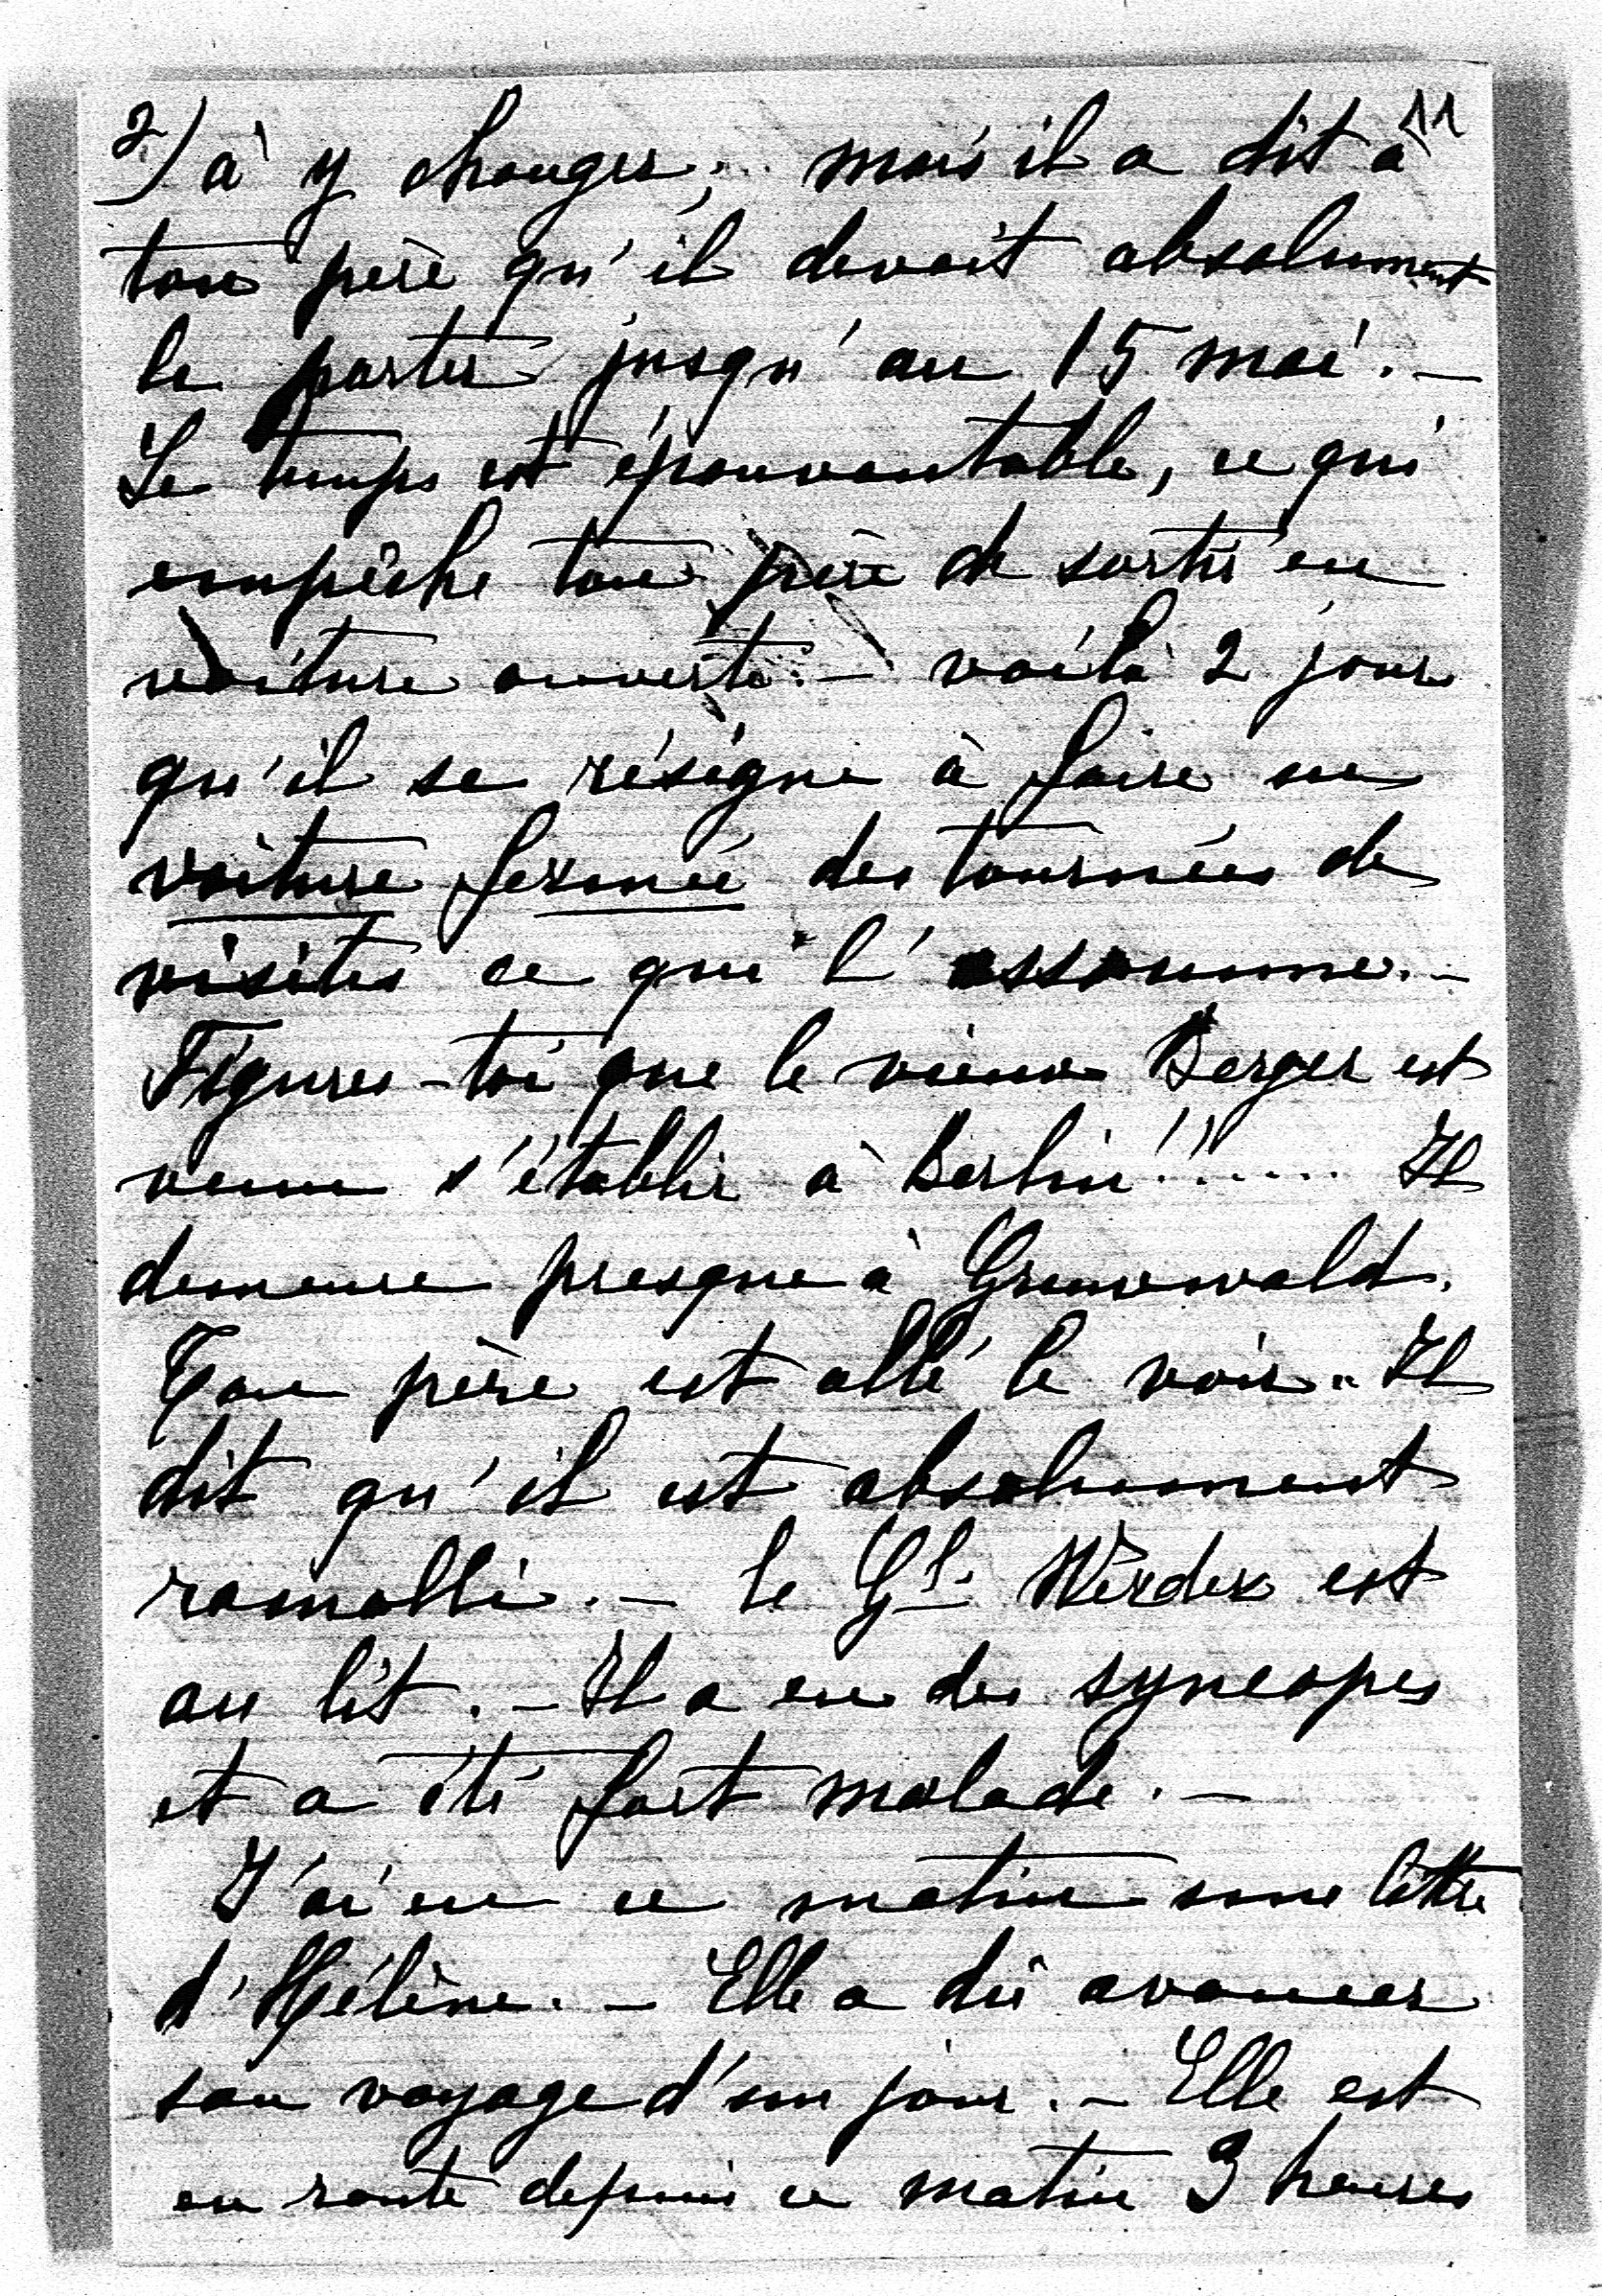 2) à y changer; mais il a dit à 11
ton père qu'il devait absolument
le porter jusqu'au 15 mai. —
Le temps est épouvantable, ce qui
empêche ton père de sortir en
voiture ouverte. — voilà 2 jours
qu'il se résigne à faire en
voiture fermée des tournées de
visites ce qui l'assomme. —
Figures-toi que le vieux Berger est
venu s'établir à Berlin!!..... Il
demeure presque à Grunewald.
Ton père est allé le voir. Il
dit qu'il est absolument
ramolli. — le Gl. Werder est
au lit. — Il a eu des syncopes
et a été fort malade. —
J'ai eu ce matin une lettre
d'Hélène. — Elle a dû avancer
son voyage d'un jour. — Elle est
en route depuis ce matin 9 heures